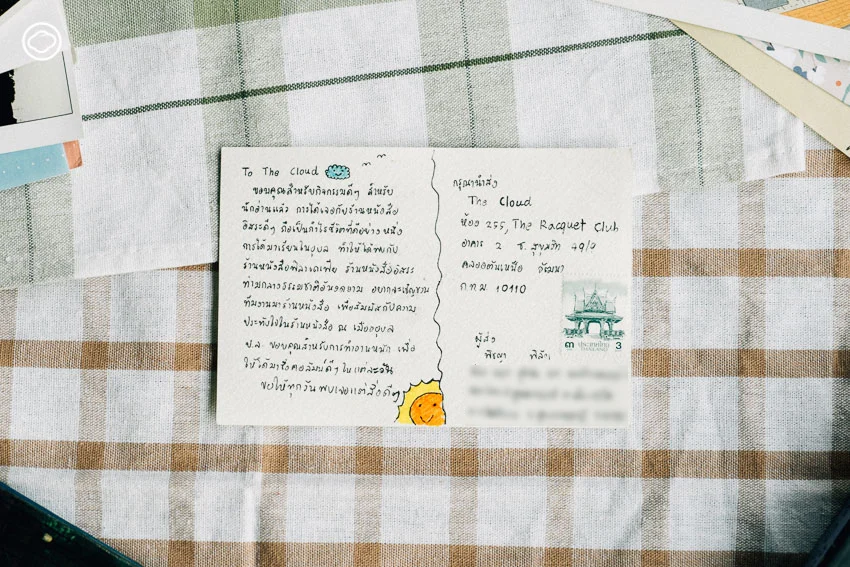 To The Cloud
ขอบคุณสำหรับกิจกรรมดีๆ สำหรับ
นักอ่านแล้ว การได้เจอกับร้านหนังสือ
อิสระดีๆ ถือเป็นกำไรชีวิตที่ดีอย่างหนึ่ง
การได้มาเรียนในอุบล ทำให้ได้พบกับ
ร้านหนังสือฟิลาเดลเฟีย ร้านหนังสืออิสระ
ท่ามกลางธรรมชาติอันงดงาม อยากจะเชิญชวน
ทีมงานมาร้านหนังสือ เพื่อสัมผัสกับความ
ประทับใจในร้านหนังสือ ณ เมืองอุบล
ป.ล. ขอบคุณสำหรับการทำงานหนัก เพื่อ
ให้ได้มาซึ่งคอลัมน์ดีๆ ในแต่ละวัน
ขอให้ทุกวันพบเจอแต่สิ่งดีๆ
กรุณานำส่ง
The Cloud
ห้อง 255, The Racquet Club
อาคาร 2 ซ. สุขุมวิท 49/9
คลองตันเหนือ วัฒนา
กทม 10110
๓ ประเทศไทย 3
THAILAND
ผู้ส่ง